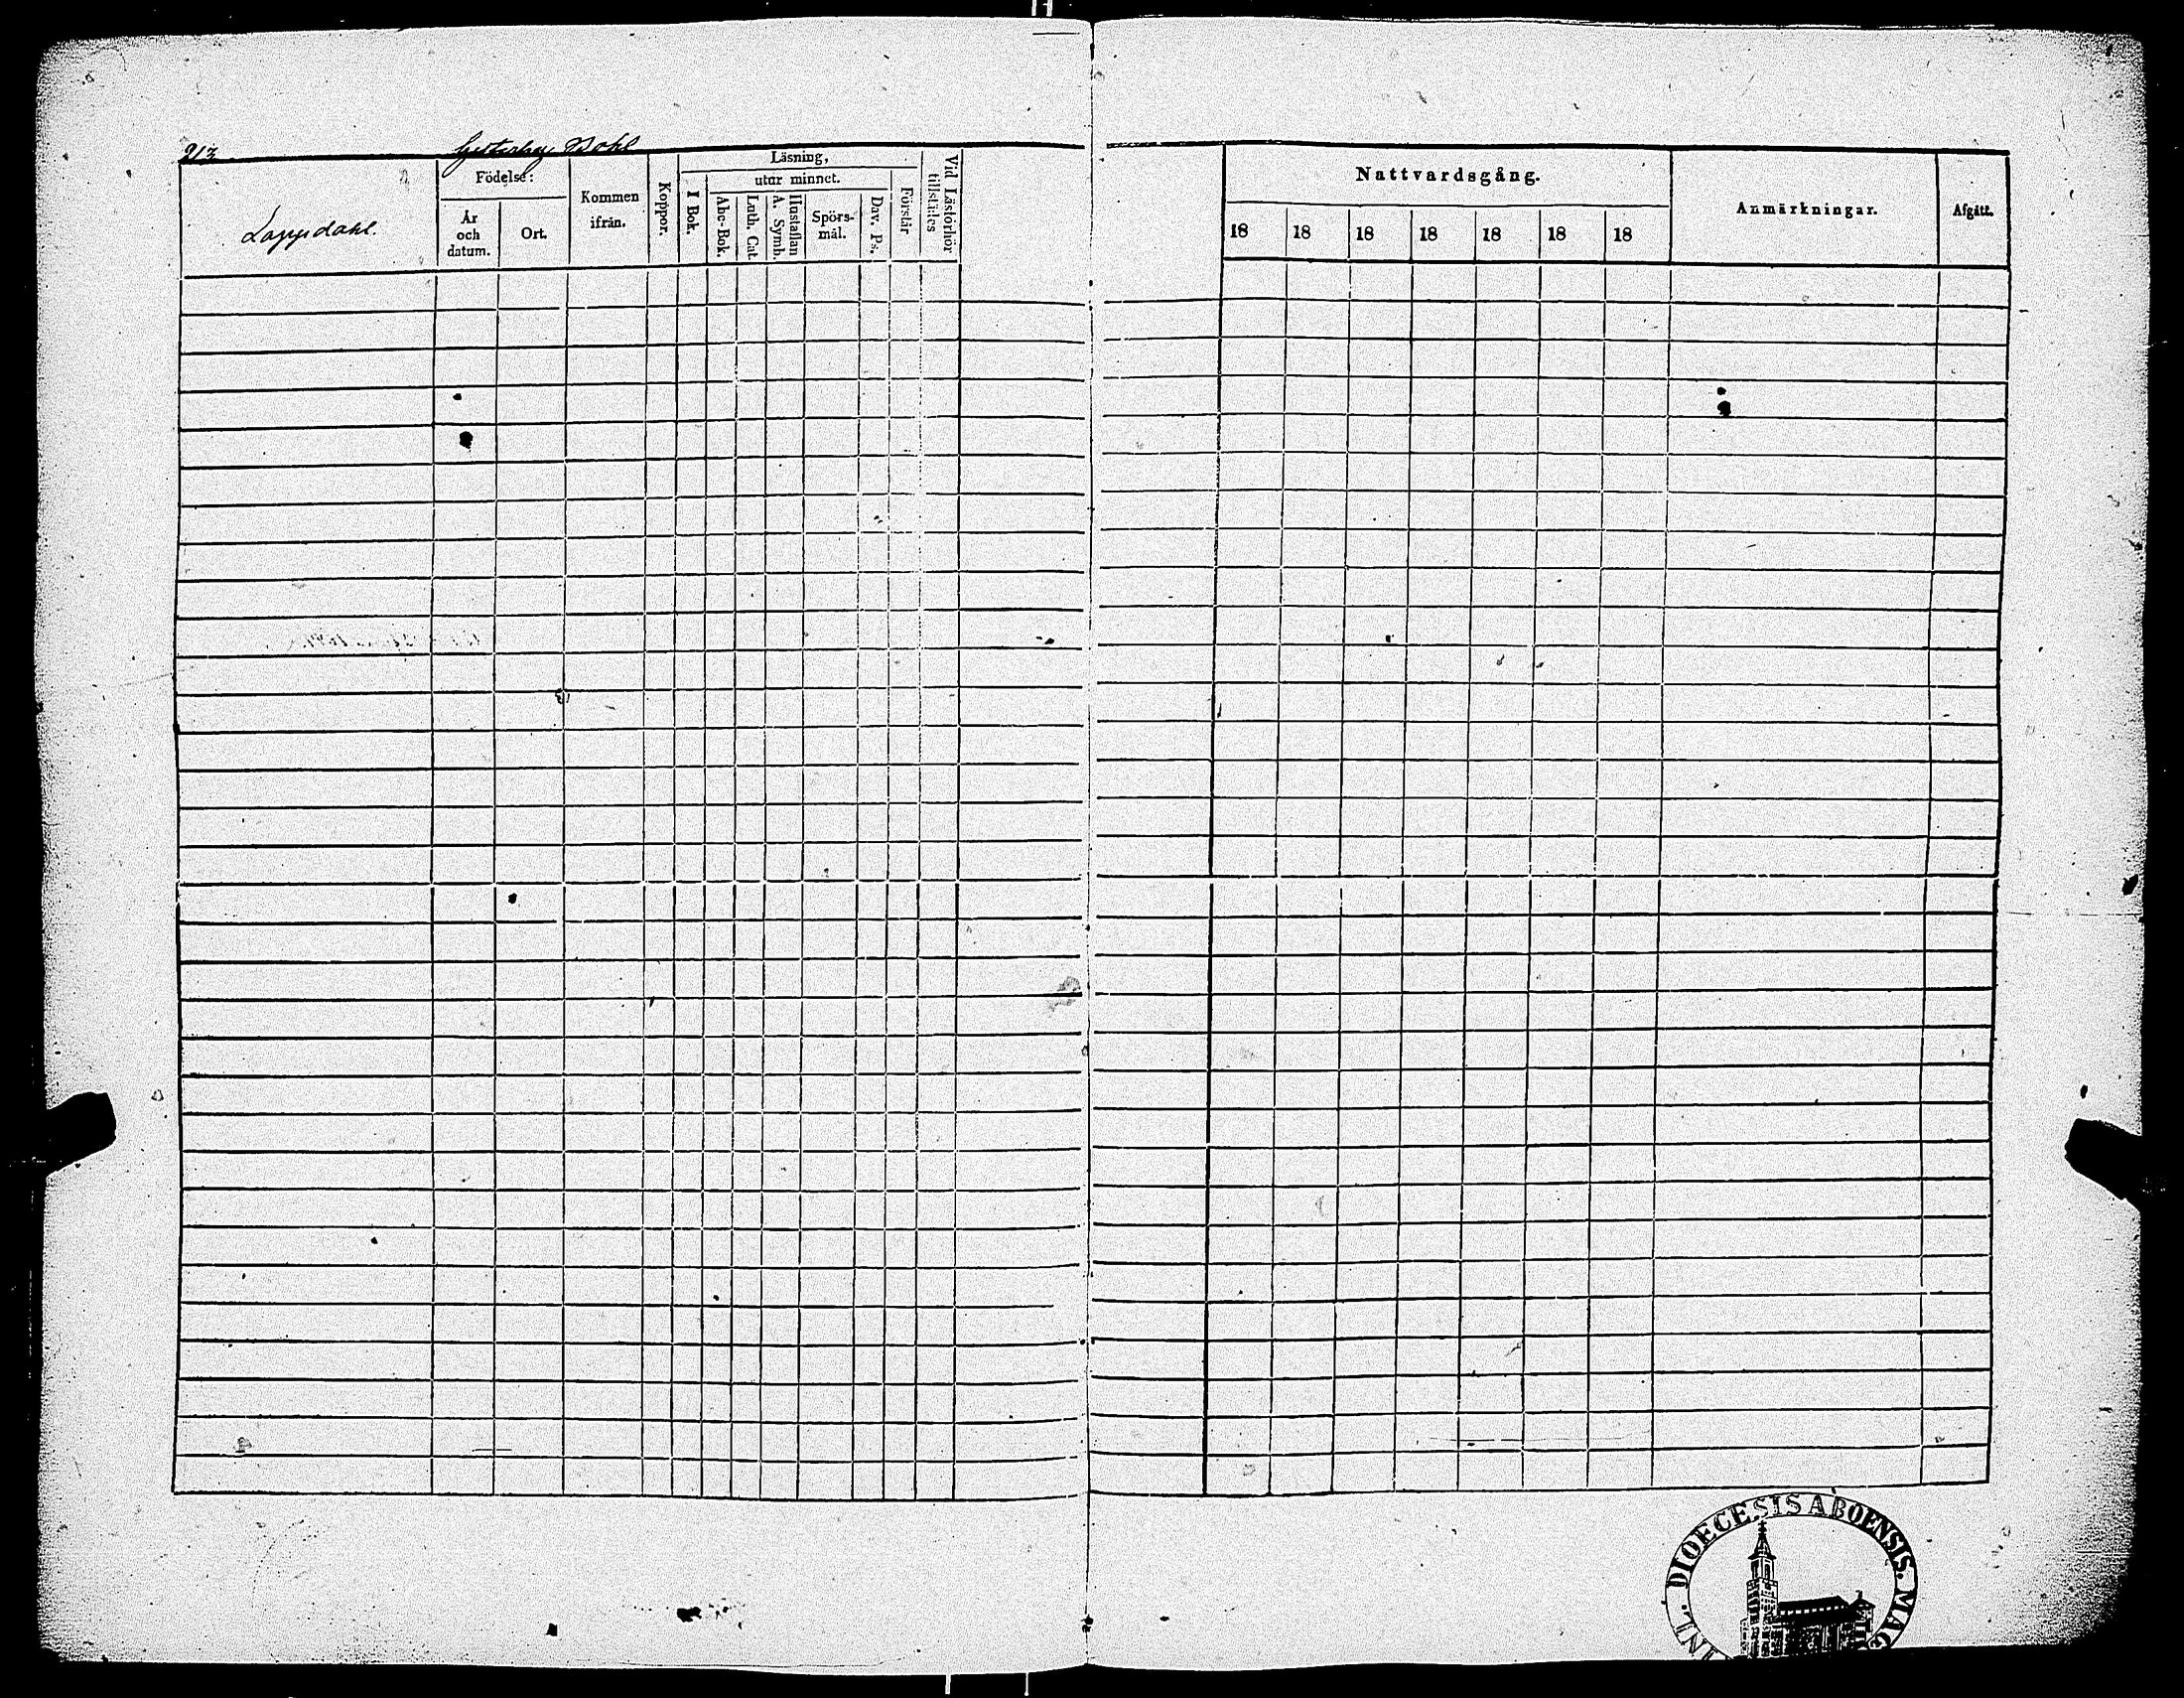 213
Bohl
Lappdahl.
Födelse:
År
och
datum.
Ort.
Kommen
ifrån.
Koppor.
Läsning,
I Bok.
utur minnet.
Abc-Bok.
Luth. Cat.
Hustaflan
A. Symb.
Spörs-
mål.
Dav. Ps.
Förstår
Vid Läsförhör
tillstädes
Nattvardsgång.
18 18 18 18 18 18 18
Anmärkningar.
Afgått.
DIOECESIS ABOENSIS. MAG